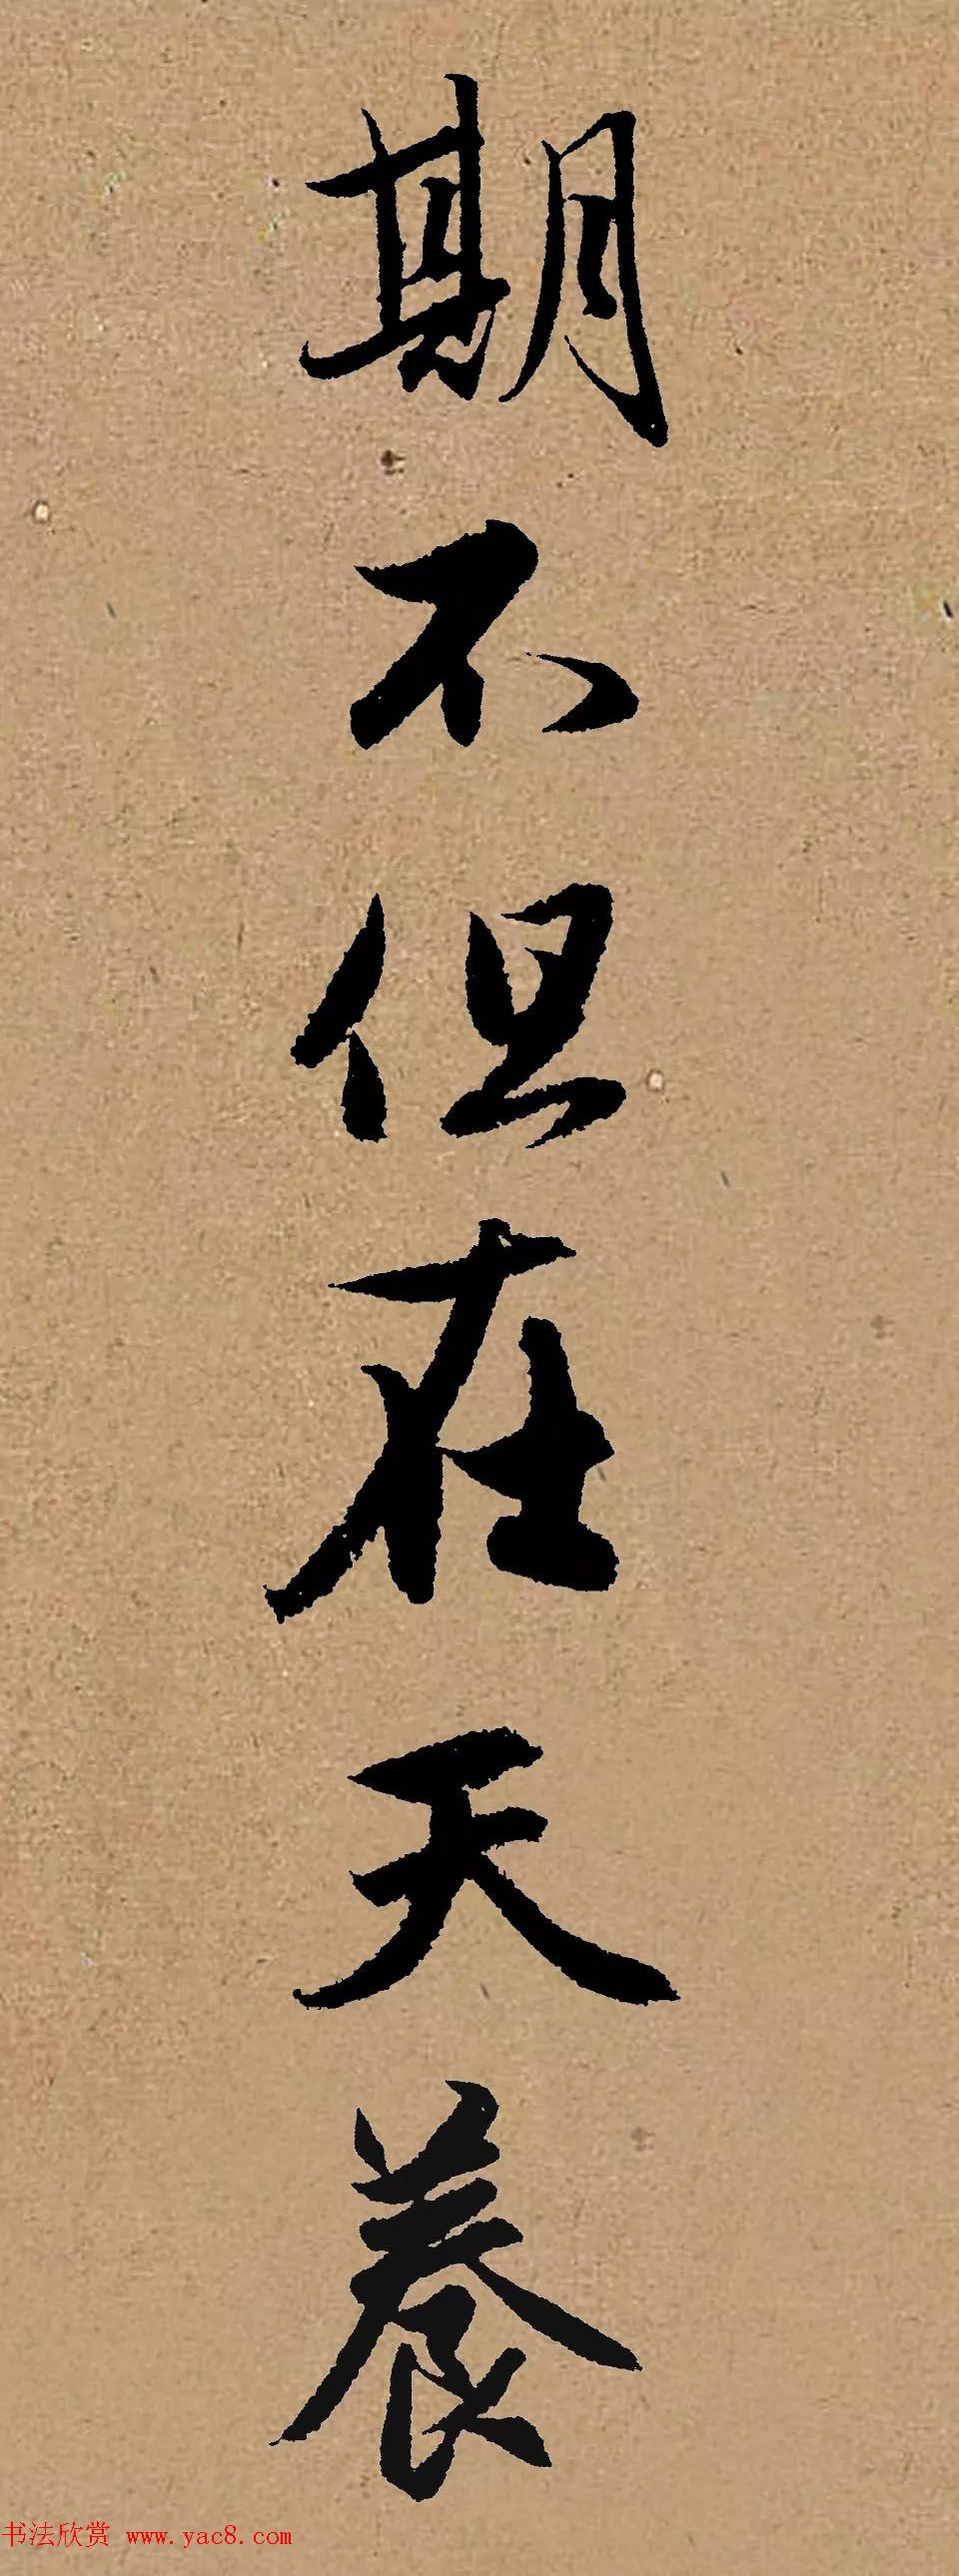 期不但在天養
书法欣赏 www.yac8.com